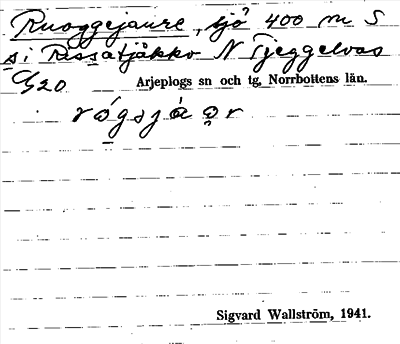 Ruoggejaure, sjö 400 m S
s i Rissatjåkko N Tjeggelvas
C/20
Arjeplogs sn och tg, Norrbottens län.
rógsjáọr
Sigvard Wallström, 1941.